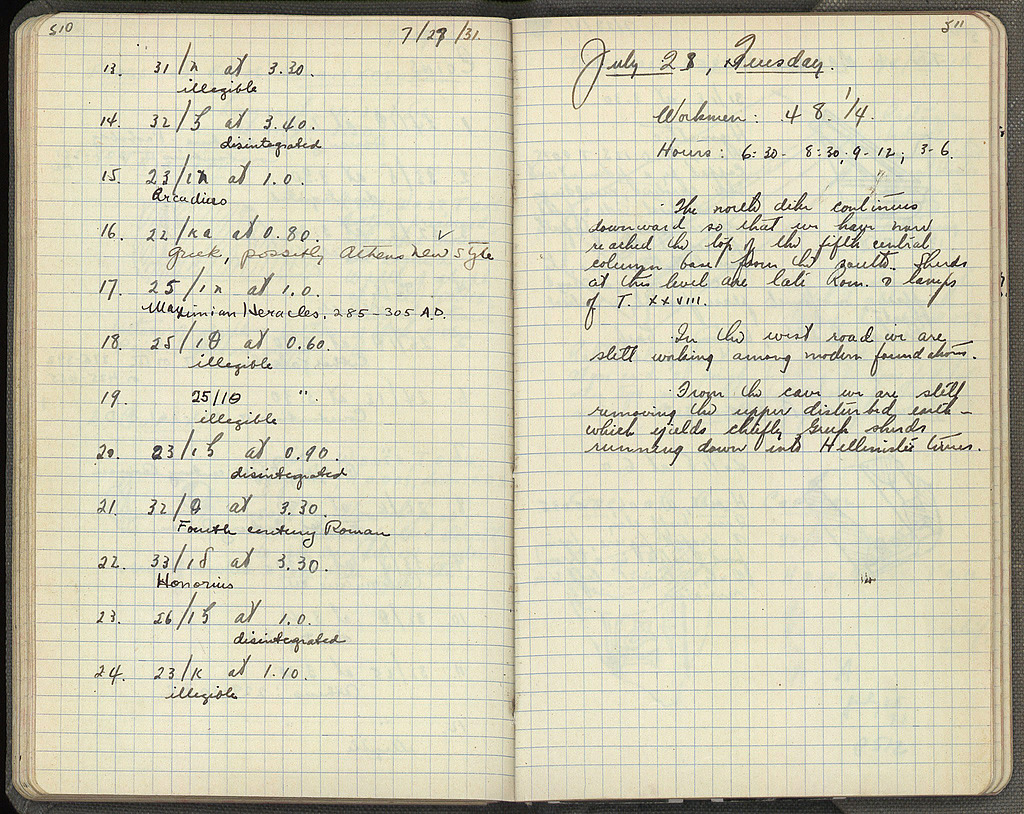 510
7/27/31.
13. 31/λ at 3.30.
illegible
14. 32/ζ at 3.40.
disintegrated
15. 23/ at 1.0.
Arcadius
16. 22/κα at 0.80.
Greek, possibly Athens New Style
17. 25/ at 1.0.
Maximian Heracles. 285-305 A.D.
18. 25/ιθ at 0.60.
illegible
19. 25/ιθ ".
illegible
20. 23/ιζ at 0.90.
disintegrated
21. 32/θ at 3.30.
Fourth century Roman
22. 33/ιδ at 3.30.
Honorius
23. 26/ιζ at 1.0.
disintegrated
24. 23/κ at 1.10.
illegible
511
July 28, Tuesday.
Workmen: 48. 1/4.
Hours: 6:30-8:30; 9-12; 3-6.
The north dike continues
downward so that we have now
reached the top of the fifth central
column base from the south. Sherds
at this level are late Rom. & lamps
of T. XXVIII.
In the west road we are
still working among modern foundations.
From the cave we are still
removing the upper disturbed earth -
which yields chiefly Greek sherds
running down into Hellenistic times.